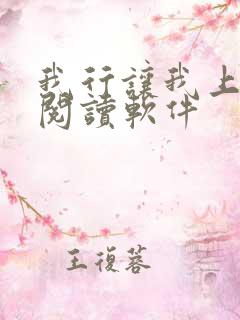 我行讓我上
閱讀軟件
王復蓉